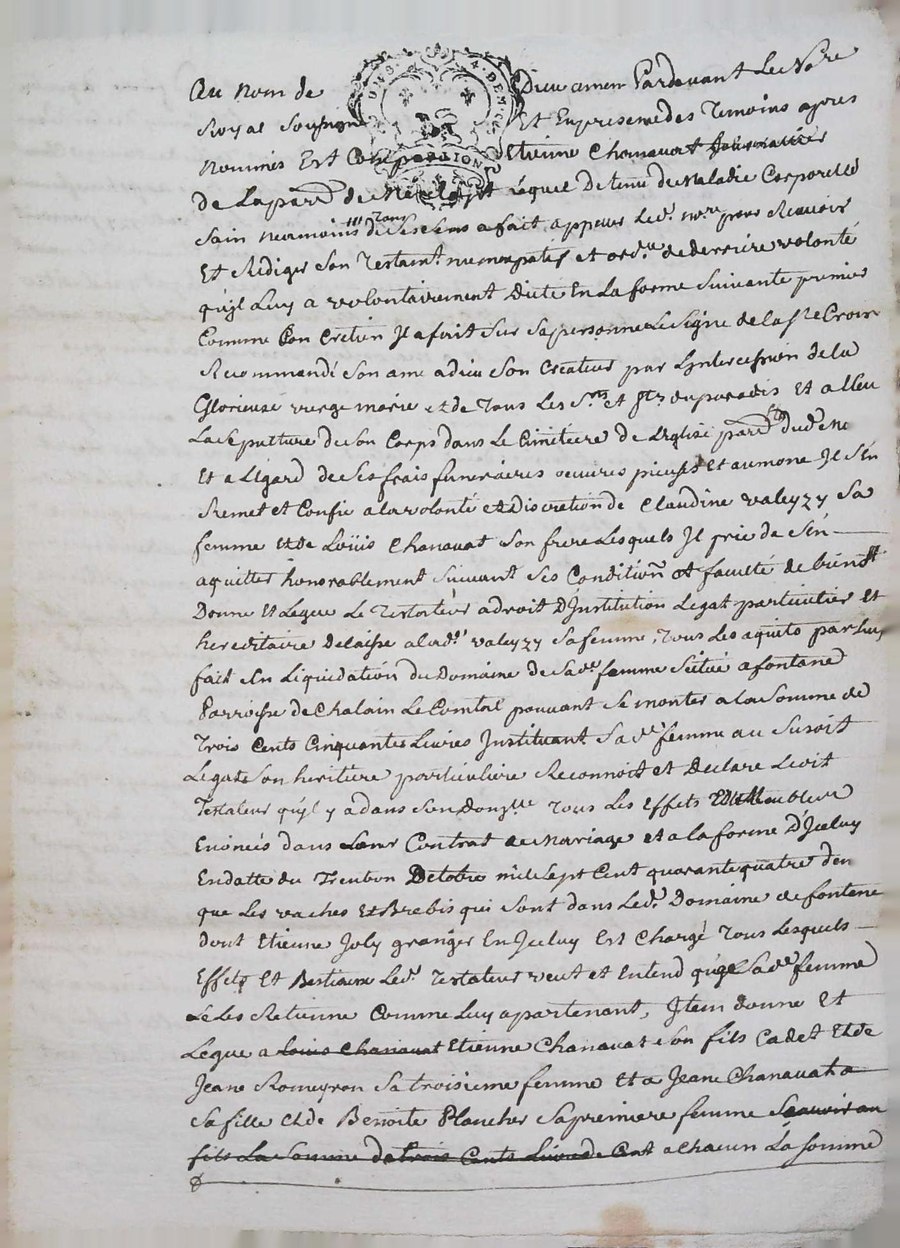 Au nom de Dieu amen Pardevant Le No.re
Royal Soussigné Et En presence des Temoins apres
nommés Est Comparu Etienne Chanavat
de La par.se de lequel Detenu de Maladie Corporelle
Sain neanmoins de Ses Sens a fait appeller Led.t no.re pour Recevoir
Et Rediger Son Testam.t nuncupatif et ord.ce de derniere volonté
qu'jl Luy a volontairement Dicté En La forme Suivante premier
Comme Bon Cretien Jl a fait Sur Sa personne Le Signe de la S.te Croix
Recommandé Son ame a dieu Son Createur par L'jntercession de la
Glorieuse vierge marie et de Tous Les S.ts et S.tes du paradis Et a lleu
La Sepulture de Son Corps dans Le Cimitiere de L'Eglise
Et a L'égard de Ses frais funeraires oeuvres pieuses et aumone Jl S'én
Remet et Confie a la volonté et Discretion de Claudine valeyzy Sa
femme Et de Loüis Chanavat Son frere Lesquels Jl prie de S'én
aquitter honorablement Suivant Ses Condition et faculté de biens
Donne Et Legue Le Testateur a droit D'Institution Legat particulier Et
hereditaire Delaisse a lad.e valeyzy Sa femme, Tous Les aquits par Luy
fait En Liquidation du Domaine de Sad.e femme Scitué a fontane
Parroisse de Chalain Le Comtal pouvant Se monter a la Somme de
Trois Cents Cinquante Livres Jnstituant Sad.e femme au Susdit
Legat Son heritiere particuliere Reconnoit et Declare Ledit
Testateur qu'jl y a dans Son Tous Les Effets
Enoncés dans Leur Contrat de Mariage et a la forme D'Jceluy
En datte du Trente un Octobre mil Sept Cent quarante quatre
que Les vaches Et Brebis qui Sont dans Led.t Domaine de fontene
dont Etienne Joly granger En Jceluy Est Chargé Tous Lesquels
Effets Et Bestiaux Led.t Testateur veut et Entend que Sad.e femme
Les Retienne Comme Luy apartenant, Jtem donne Et
Legue a Louis Chanavat Etienne Chanavat Son fils Cadet Et de
Jeane Romeyron Sa troisieme femme Et a Jeane Chanavat
Sa fille Et de Benoite Plancher Sa premiere femme Scavoir au
fils La Somme de trois Cents Livres de Cent a chacun La Somme